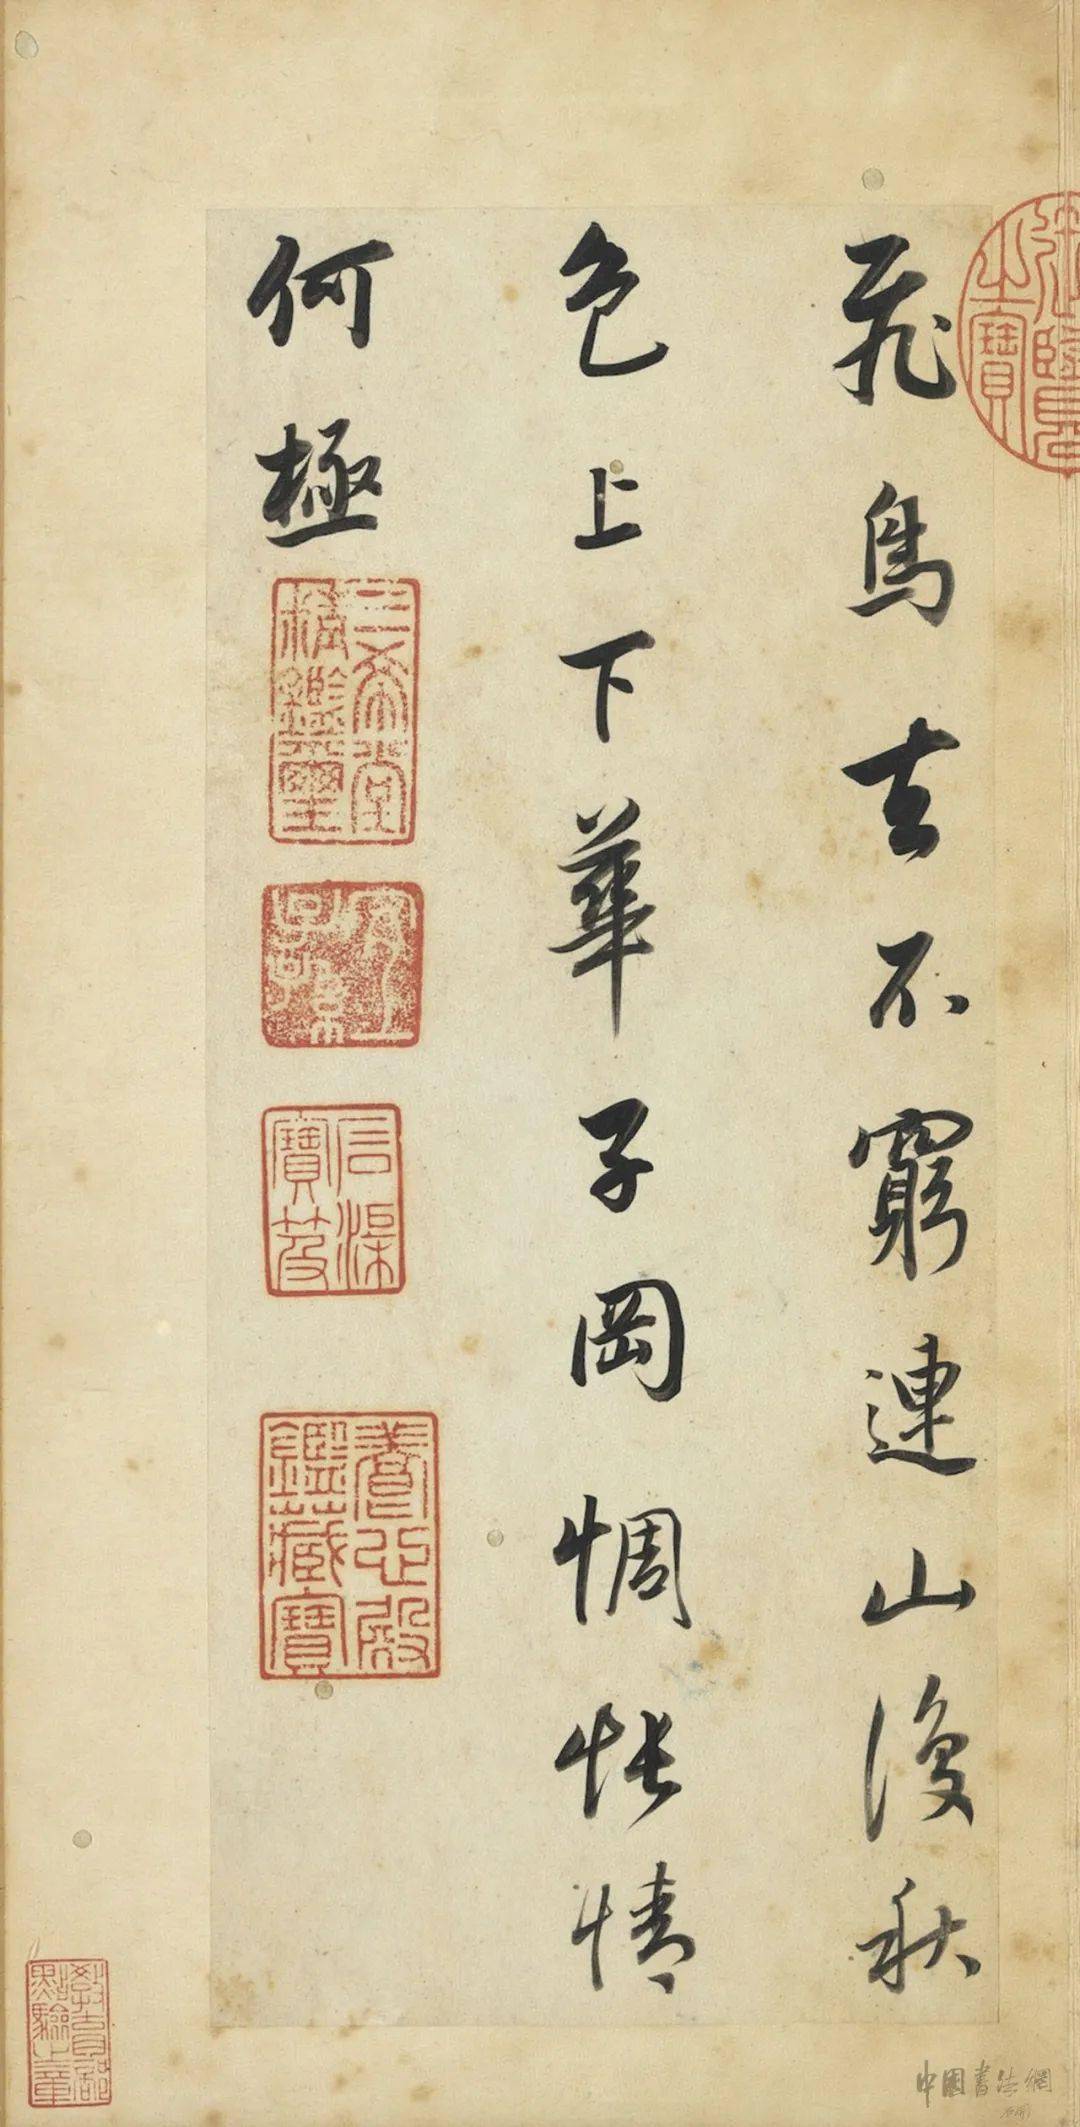 飛鳥去不窮連山復秋
色上下華子岡惆悵情
何極
三希堂精鑑璽
石渠寶笈
養心殿鑑藏寶
教育部點驗之章
中國書法網